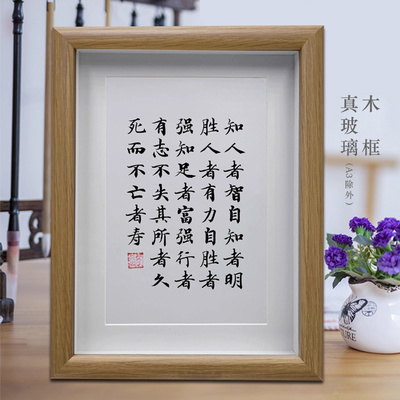 知人者智自知者明
胜人者有力自胜者
强知足者富强行者
有志不失其所者久
死而不亡者寿
木框
真玻璃(A3除外)